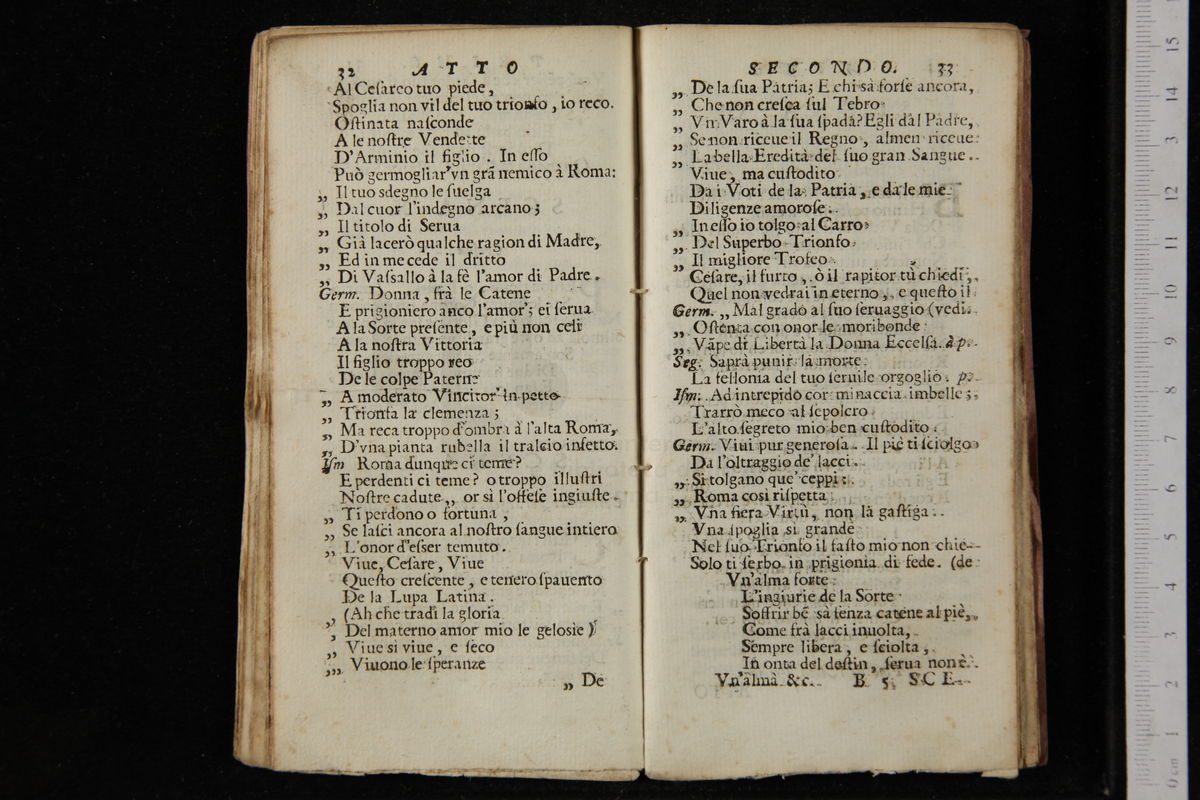 32 ATTO
Al Cesareo tuo piede,
Spoglia non vil del tuo trionfo, io reco.
Ostinata nasconde
A le nostre Vendette
D'Arminio il figlio. In esso
Può germogliar' vn grã nemico à Roma:
„ Il tuo sdegno le suelga
„ Dal cuor l'indegno arcano;
„ Il titolo di Serua
„ Già lacerò qualche ragion di Madre,
„ Ed in me cede il dritto
„ Di Vassallo à la fè l'amor di Padre.
Germ. Donna, frà le Catene
E prigioniero anco l'amor'; ei serua
A la Sorte presente, e più non celi
A la nostra Vittoria
Il figlio troppo reo
De le colpe Paterne
„ A moderato Vincitor' in petto
„ Trionfa la clemenza;
„ Ma reca troppo d'ombra à l'alta Roma,
„ D'vna pianta rubella il tralcio infetto.
Ism Roma dunque ci teme?
E perdenti ci teme? o troppo illustri
Nostre cadute, or sì l'offese ingiuste
„ Ti perdono o fortuna,
„ Se lasci ancora al nostro sangue intiero
„ L'onor d'esser temuto.
Viue, Cesare, Viue
Questo crescente, e tenero spauento
De la Lupa Latina.
, (Ah che tradi la gloria
, Del materno amor mio le gelosie)
„ Viue si viue, e seco
„, Viuono le speranze
„ De
SECONDO. 33
„ De la sua Patria; E chi sà forse ancora,
„ Che non cresca sul Tebro
„ Vn Varo à la sua spada? Egli dal Padre,
„ Se non riceue il Regno, almen riceue
„ La bella Eredità del suo gran Sangue.
Viue, ma custodito
Da i Voti de la Patria, e da le mie
Diligenze amorose.
„ In esso io tolgo al Carro
„ Del Superbo Trionfo
„ Il migliore Trofeo.
Cesare, il furto, ò il rapitor tù chiedi,
Quel non vedrai in eterno, e questo il
Germ. „ Mal grado al suo seruaggio (vedi.
„ Ostenta con onor le moribonde
„ Vãpe di Libertà la Donna Eccelsa. à p.
Seg. Saprà punir la morte
La fellonia del tuo seruile orgoglio. p.
Ism. Ad intrepido cor minaccia imbelle;
Trarrò meco al sepolcro
L'alto segreto mio ben custodito.
Germ. Viui pur generosa. Il piè ti sciolgo
Da l'oltraggio de' lacci.
„ Si tolgano que' ceppi:
„ Roma così rispetta
„ Vna fiera Virtù, non là gastiga.
„ Vna spoglia si grande
Nel suo Trionfo il fasto mio non chie-
Solo ti serbo in prigionia di fede. (de
Vn'alma forte
L'ingiurie de la Sorte
Soffrir bẽ sà senza catene al piè,
Come frà lacci inuolta,
Sempre libera, e sciolta,
In onta del destin, serua non è.
Vn'alma &c. B 5 SCE-